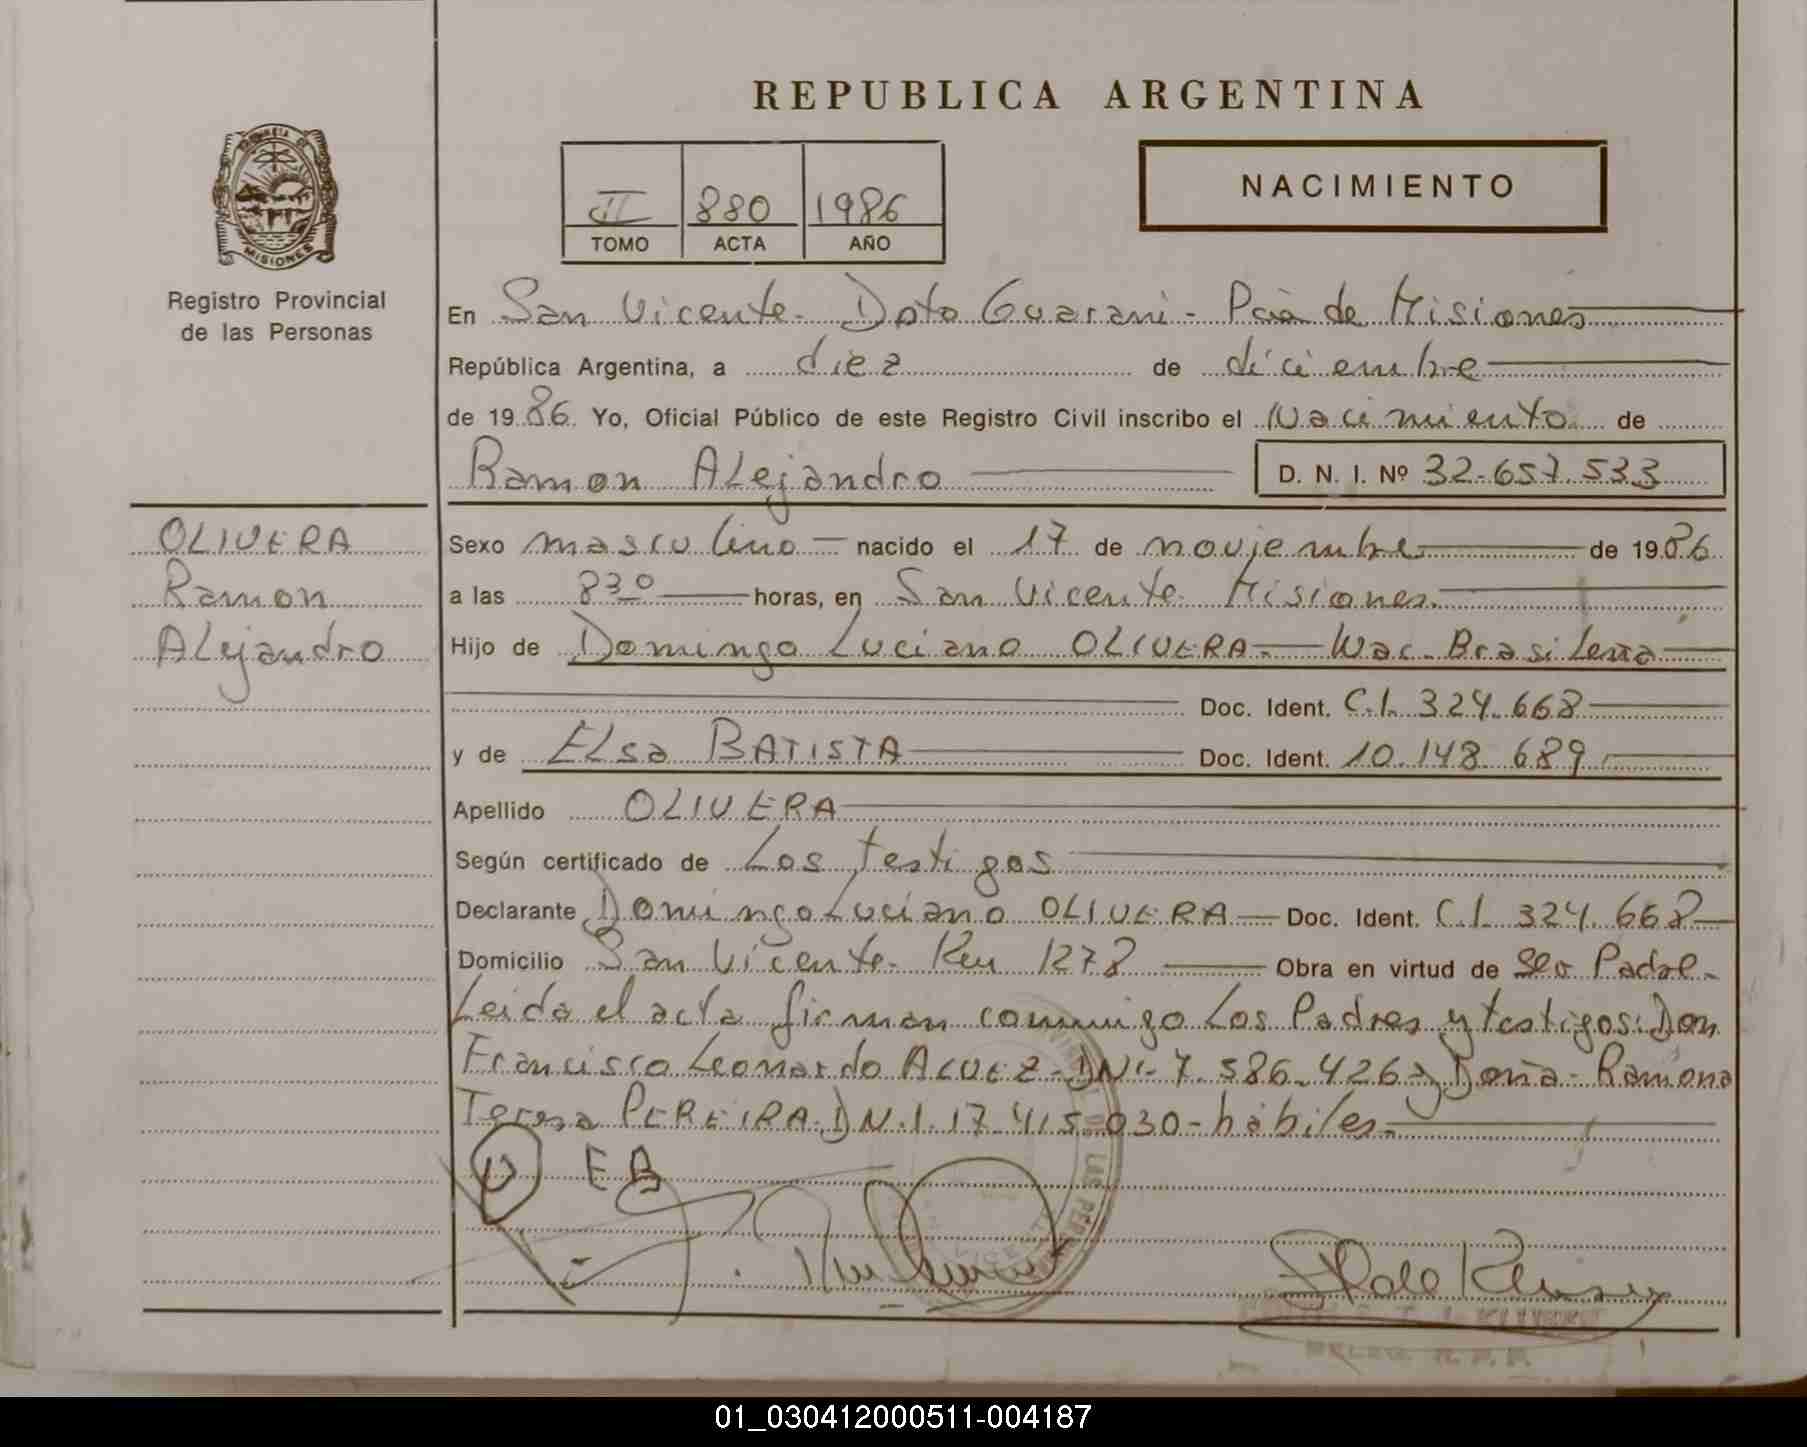 REPUBLICA ARGENTINA
NACIMIENTO
II 880 1986
TOMO ACTA AÑO
PROVINCIA DE
MISIONES
Registro Provincial
de las Personas
En San Vicente - Dpto Guarani - Pcia de Misiones
República Argentina, a diez de diciembre
de 1986 Yo, Oficial Público de este Registro Civil inscribo el Nacimiento de
Ramon Alejandro D. N. I. Nº 32.657.533
OLIVERA
Ramon
Alejandro
Sexo masculino nacido el 17 de noviembre de 1986
a las 8 30 horas, en San Vicente Misiones
Hijo de Domingo Luciano OLIVERA - Nac. Brasilera
Doc. Ident. C.I. 324.668
y de Elsa BATISTA Doc. Ident. 10.148.689
Apellido OLIVERA
Según certificado de Los testigos
Declarante Domingo Luciano OLIVERA Doc. Ident. C.I. 324.668
Domicilio San Vicente - Km 1278 Obra en virtud de Ser Padre -
Leida el acta firman conmigo Los Padres y testigos: Don
Francisco Leonardo ALVEZ - DNI - 7.586.426 y Doña - Ramona
Teresa PEREIRA - D N.I. 17.415.030 - hábiles -
E B
01_030412000511-004187